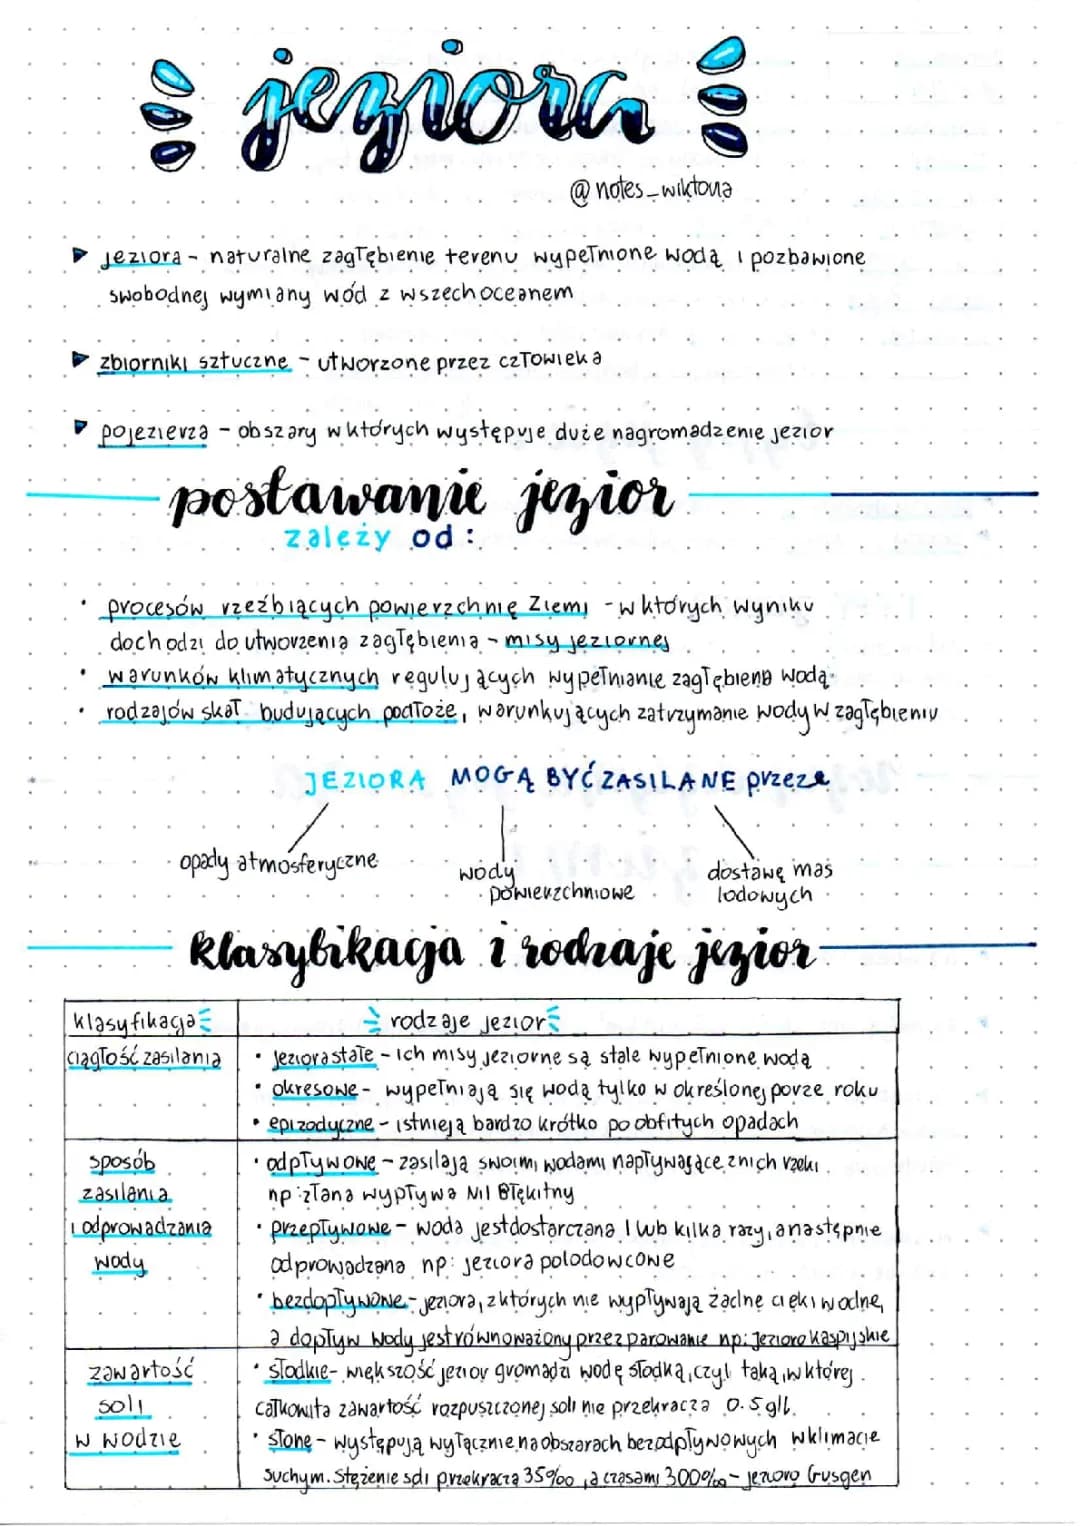 jeziora
@notes_wiktoria
jeziora - naturalne zagłębienie terenu wypełnione wodą i pozbawione
swobodnej wymiany wód z wszechoceanem
zbiorniki sztuczne - utworzone przez człowieka
pojezierza - obszary w których występuje duże nagromadzenie jezior
postawanie jezior
zależy od:
procesów rzeźbiących powierzchnię Ziemi - w których wyniku
dochodzi do utworzenia zagłębienia - misy jeziornej
warunków klimatycznych regulujących wypełnianie zagłębienia wodą
rodzajów skał budujących podłoże, warunkujących zatrzymanie wody w zagłębieniu
JEZIORA MOGĄ BYĆ ZASILANE przez
opady atmosferyczne
wody
powierzchniowe
dostawę mas
lodowych
klasyfikacja i rodzaje jezior
klasyfikacja
rodzaje jezior
ciągłość zasilania
• jeziora stałe - ich misy jeziorne są stale wypełnione wodą
• okresowe - wypełniają się wodą tylko w określonej porze roku
• epizodyczne - istnieją bardzo krótko po obfitych opadach
sposób
zasilania
i odprowadzania
wody
• odpływowe - zasilają swoimi wodami napływające z nich rzeki
np: z Tana wypływa Nil Błękitny
• przepływowe - woda jest dostarczana 1 lub kilka razy, a następnie
odprowadzana np: jeziora polodowcowe
• bezdopływowe - jeziora, z których nie wypływają żadne cieki wodne,
a dopływ wody jest równoważony przez parowanie np: Jezioro Kaspijskie
zawartość
soli
w wodzie
• słodkie - większość jezior gromadzi wodę słodką, czyli taką, w której
całkowita zawartość rozpuszczonej soli nie przekracza 0.5 g/l.
• słone - występują wyłącznie na obszarach bezodpływowych w klimacie
suchym. Stężenie soli przekracza 35‰, a czasami 300‰ - jezioro Gusgen